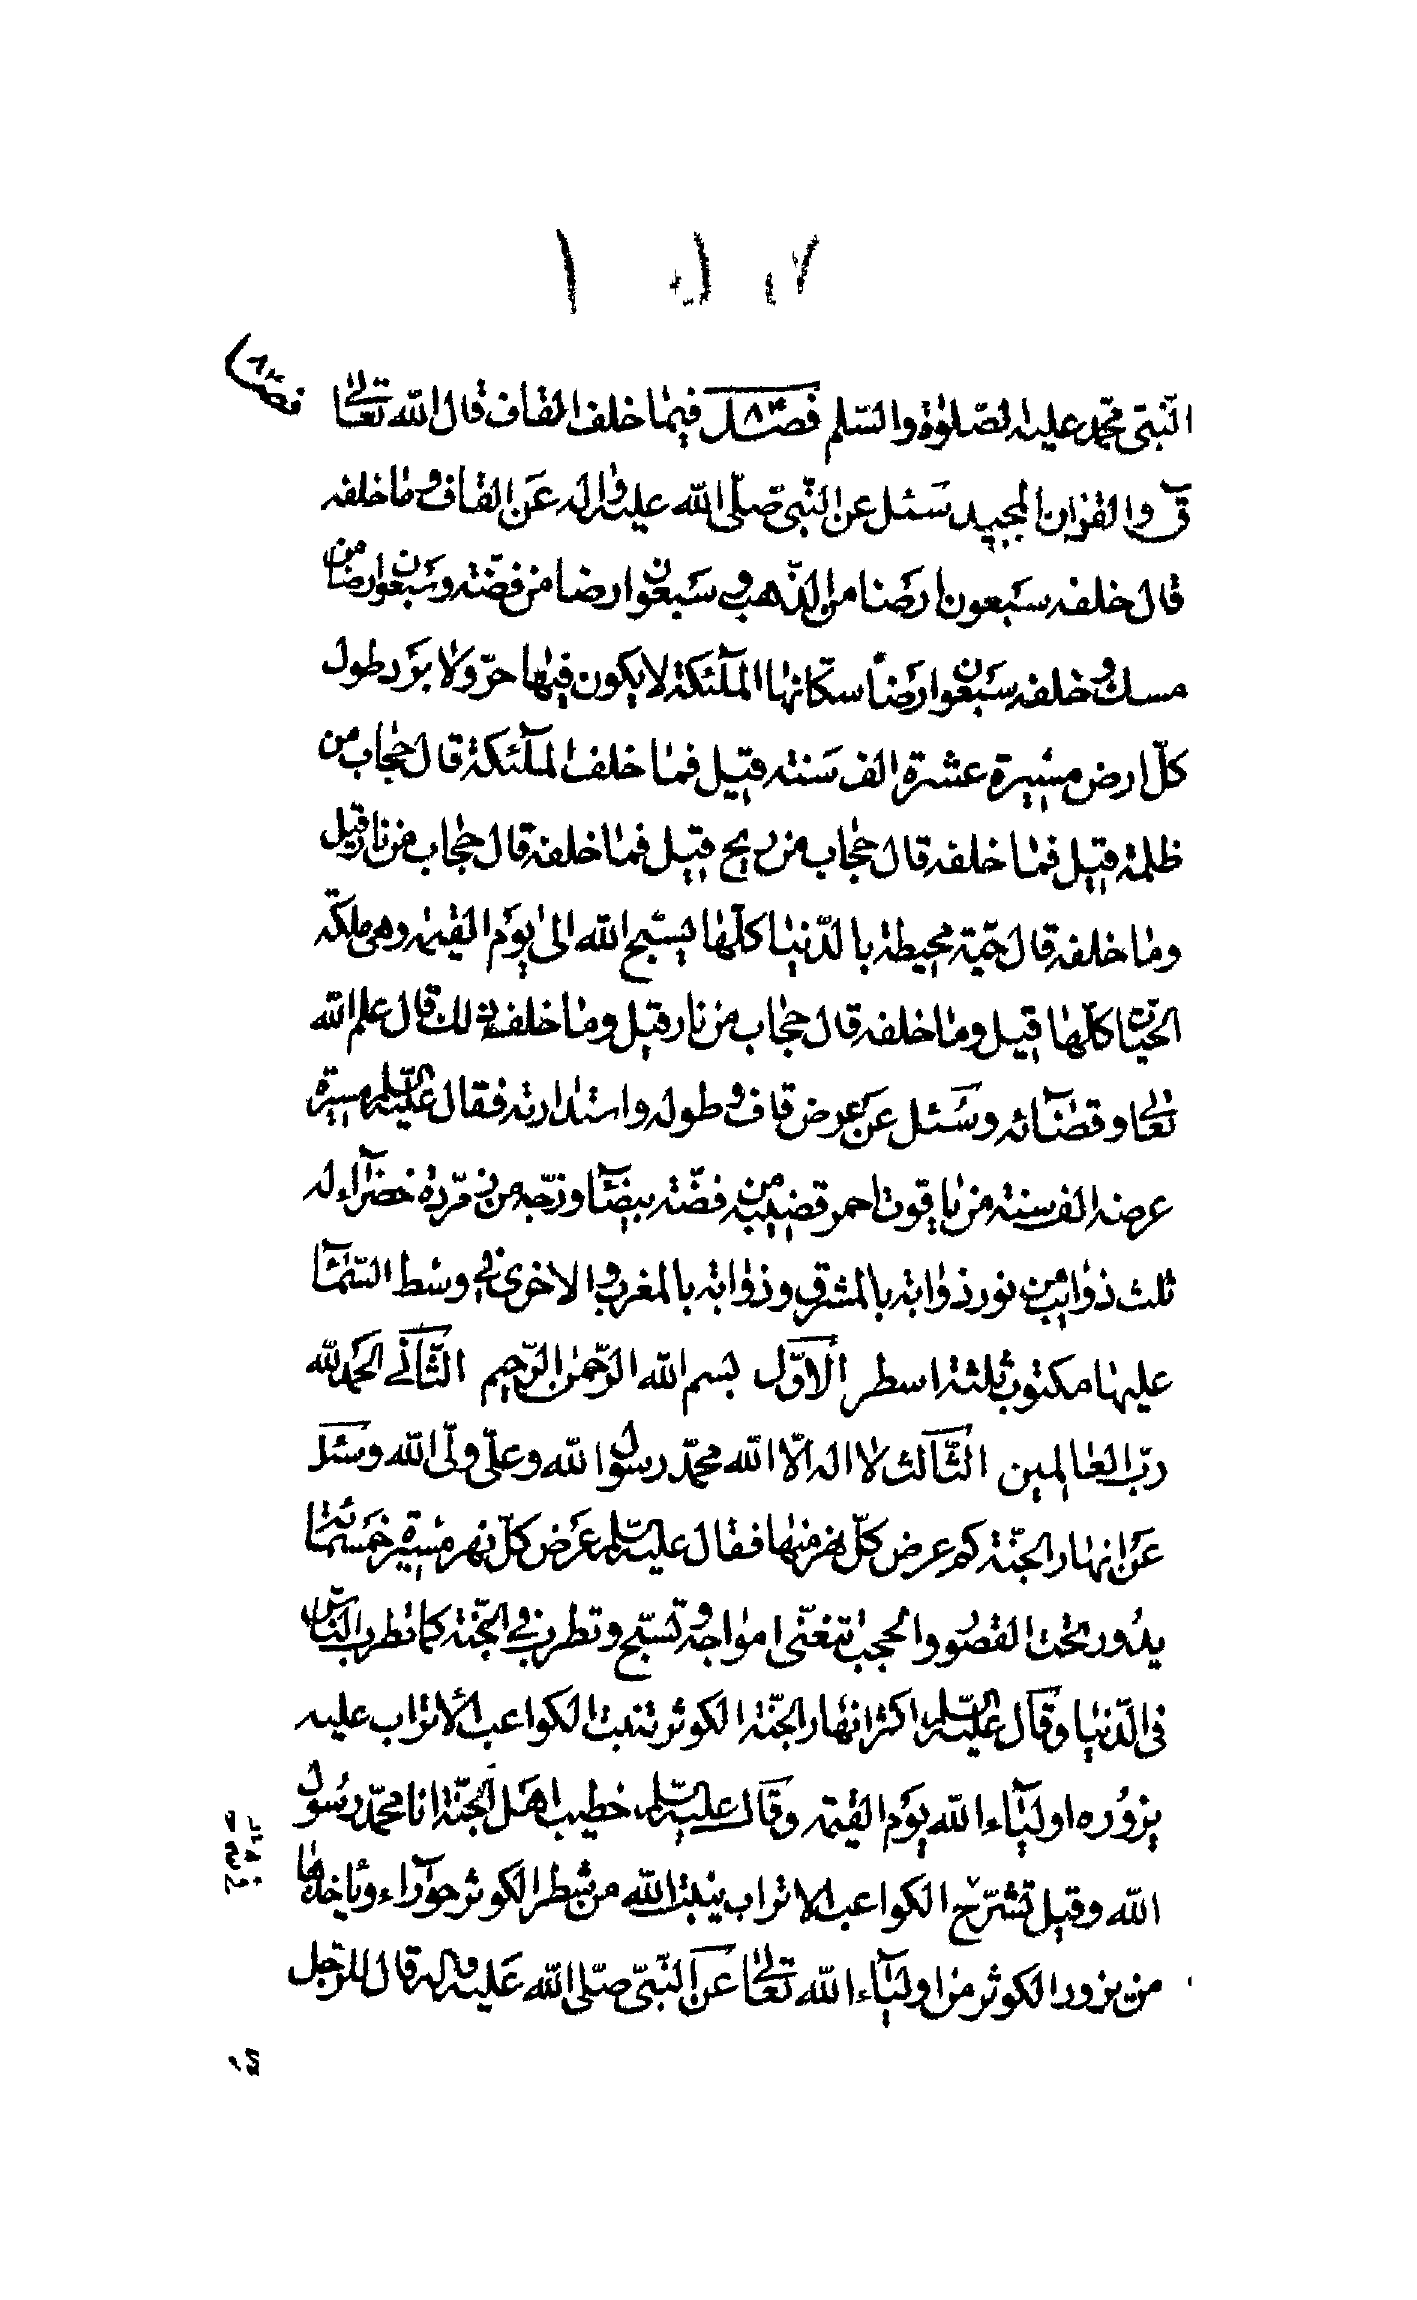 النّبىّ محمّد عليه الصّلوٰة والسّلم فصل ٨٣ فيما خلف القاف قال الله تعالىٰ
قٓ والقران المجيد سئل عن النّبىّ صلّى الله عليه واله عن القاف وما خلفه
قال خلفه سبعون ارضا من الذّهب و سبعون ارضا من فضّة وسبعون ارضا من
مسك و خلفه سبعون ارضاً سكّانها الملٓئكة لا يكون فيها حرّ ولا برد طول
كلّ ارض مسيرة عشرة الف سنة قيل فما خلف الملٓئكة قال حجاب من
ظلمة قيل فما خلفه قال حجاب من ريح قيل فما خلفه قال حجاب من نار قيل
وما خلفه قال حيّة محيطة بالدّنيا كلّها يسبّح الله الى يوم القيٰمة وهى ملكة
الحيّات كلّها قيل وما خلفه قال حجاب من نار قيل وما خلف ذلك قال علم الله
تعالىٰ وقضائه وسئل عن عرض قاف و طوله واستدارته فقال عليه السّلم مسيرة
عرضه الف سنة من ياقوت احمر قضيبه من فضّة بيضآء وزجّه من زمرّدة خضرآء له
ثلث ذوائب من نور ذوابة بالمشرق و ذوابة بالمغرب والاخرى فى وسط السّمآء
عليها مكتوب ثلثة اسطر الاوّل بسم الله الرّحمٰن الرّحيم الثّانى الحمد لله
ربّ العالمين الثّالث لا اله الّا الله محمّد رسول الله وعلىّ ولىّ الله وسئل
عن انهار الجنّة كم عرض كلّ نهر منها فقال عليه السّلم عرض كلّ نهر مسيرة خمسمائة
يدور تحت القصور والحجب تتغنّى امواجه و تسبّح وتطرب فى الجنّة كما تطرب النّاس
فى الدّنيا وقال عليه السّلم اكثر انهار الجنّة الكوثر تنبت الكواعب الأتراب عليه
يزوره اوليآء الله يوم القيمة وقال عليه السّلم خطيب اهل الجنّة انا محمّد رسول
الله وقيل تشرّح الكواعب الاتراب ينبت الله من شطر الكوثر حورآء وياخذها
من يزور الكوثر من اوليآء الله تعالىٰ عن النّبىّ صلّى الله عليه واله قال للرّجل